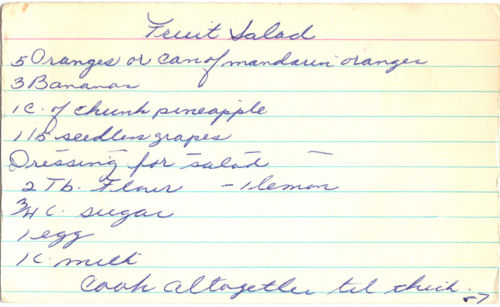 Fruit Salad
5 Oranges or can of mandarin oranges
3 Bananas
1 C. of chunk pineapple
1 lb seedless grapes
Dressing for salad
2 Tb. Flour - 1 lemon
3/4 C. sugar
1 egg
1 C. milk
Cook altogether til thick.